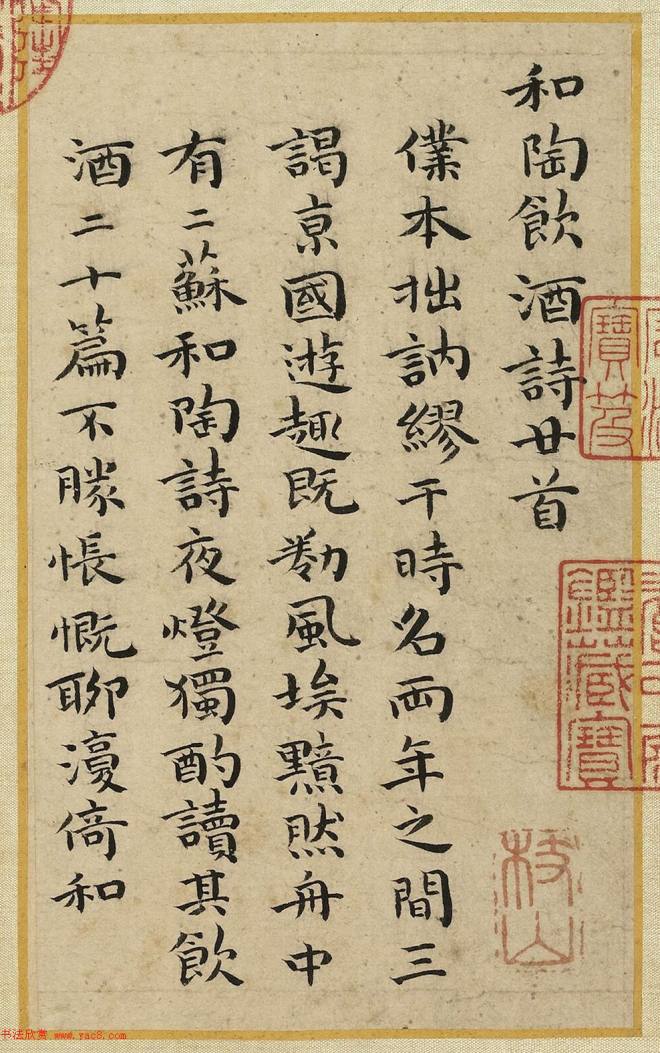 和陶飲酒詩廿首
僕本拙訥繆干時名兩年之間三
謁京國遊趣既勌風埃黯然舟中
有二蘇和陶詩夜燈獨酌讀其飲
酒二十篇不勝悵慨聊漫倚和
寶笈
鑑藏寶
枝山
书法欣赏 www.yac8.com